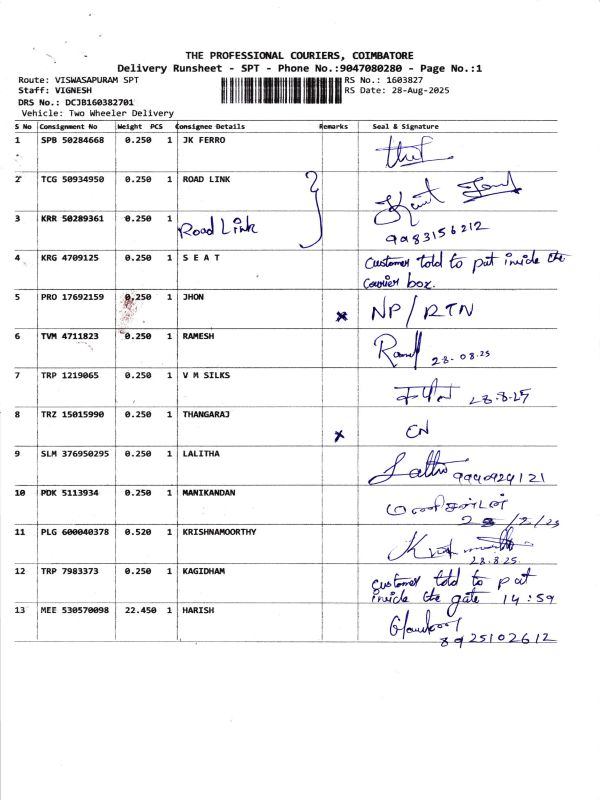 THE PROFESSIONAL COURIERS, COIMBATORE
Delivery Runsheet - SPT - Phone No.:9047080280 - Page No.:1
Route: VISWASAPURAM SPT RS No.: 1603827
Staff: VIGNESH RS Date: 28-Aug-2025
DRS No.: DCJB160382701
Vehicle: Two Wheeler Delivery
S No Consignment No Weight PCS Consignee Details Remarks Seal & Signature
1 SPB 50284668 0.250 1 JK FERRO
2 TCG 50934950 0.250 1 ROAD LINK
3 KRR 50289361 0.250 1 Road Link 9983156212
4 KRG 4709125 0.250 1 S E A T Customer told to put inside the
courier box.
5 PRO 17692159 0.250 1 JHON x NP/RTN
6 TVM 4711823 0.250 1 RAMESH 28.08.25
7 TRP 1219065 0.250 1 V M SILKS 28.8.25
8 TRZ 15015990 0.250 1 THANGARAJ x CN
9 SLM 376950295 0.250 1 LALITHA Lalitha 9940924121
10 PDK 5113934 0.250 1 MANIKANDAN மணிகண்டன்
11 PLG 600040378 0.520 1 KRISHNAMOORTHY
28.8.25
12 TRP 7983373 0.250 1 KAGIDHAM Customer told to put
inside the gate 14:59
13 MEE 530570098 22.450 1 HARISH
8925102612